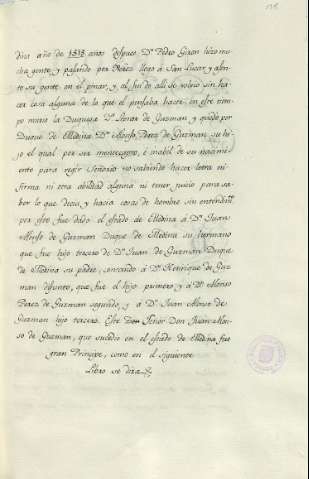 dira año de 1515 años despues Dn Pedro Giron hizo mu
cha gente, y pasando por Xerez llegó à San Lucar y asen
tó su gente en el pinar, y al fin de alli se volvio sin ha
cer cosa alguna de lo que el pensaba hacer, en este tiem
po murio la Duquesa Dª Leonor de Guzman y quedó por
Duque de Medina Dn Alonso Perez de Guzman su hi
jo el qual por ser mentecapto, è inabil de su nacimi
ento para regir Señorio no sabiendo hacer letra ni
firma ni otra abilidad alguna ni tener juicio para sa
ber lo que decia, y hacia cosas de hombre sin entendimto
por esto fue dado el estado de Medina á Dn Juan
Alonso de Guzman Duque de Medina su hermano
que fue hijo tercero de Dn Juan de Guzman Duque
de Medina su padre, contando á Dn Henrique de Guz
man difunto, que fue el hijo primero y á Dn Alonso
Perez de Guzman segundo, y á Dn Juan Alonso de
Guzman hijo tercero. Este Don Señor Don Juan Alon
so de Guzman, que sucedio en el estado de Medina fue
gran Principe, como en el siguiente
Libro se dira